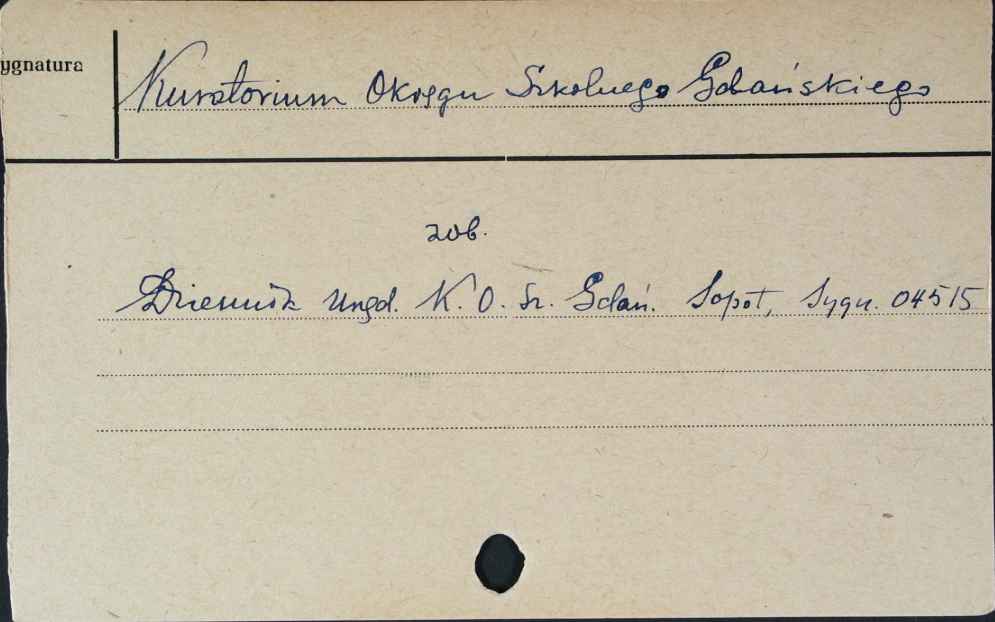 ygnatura
Kuratorium Okręgu Szkolnego Gdańskiego
zob.
Dziennik Urzęd. K. O. Sz. Gdań. Sopot, Sygn. 04515